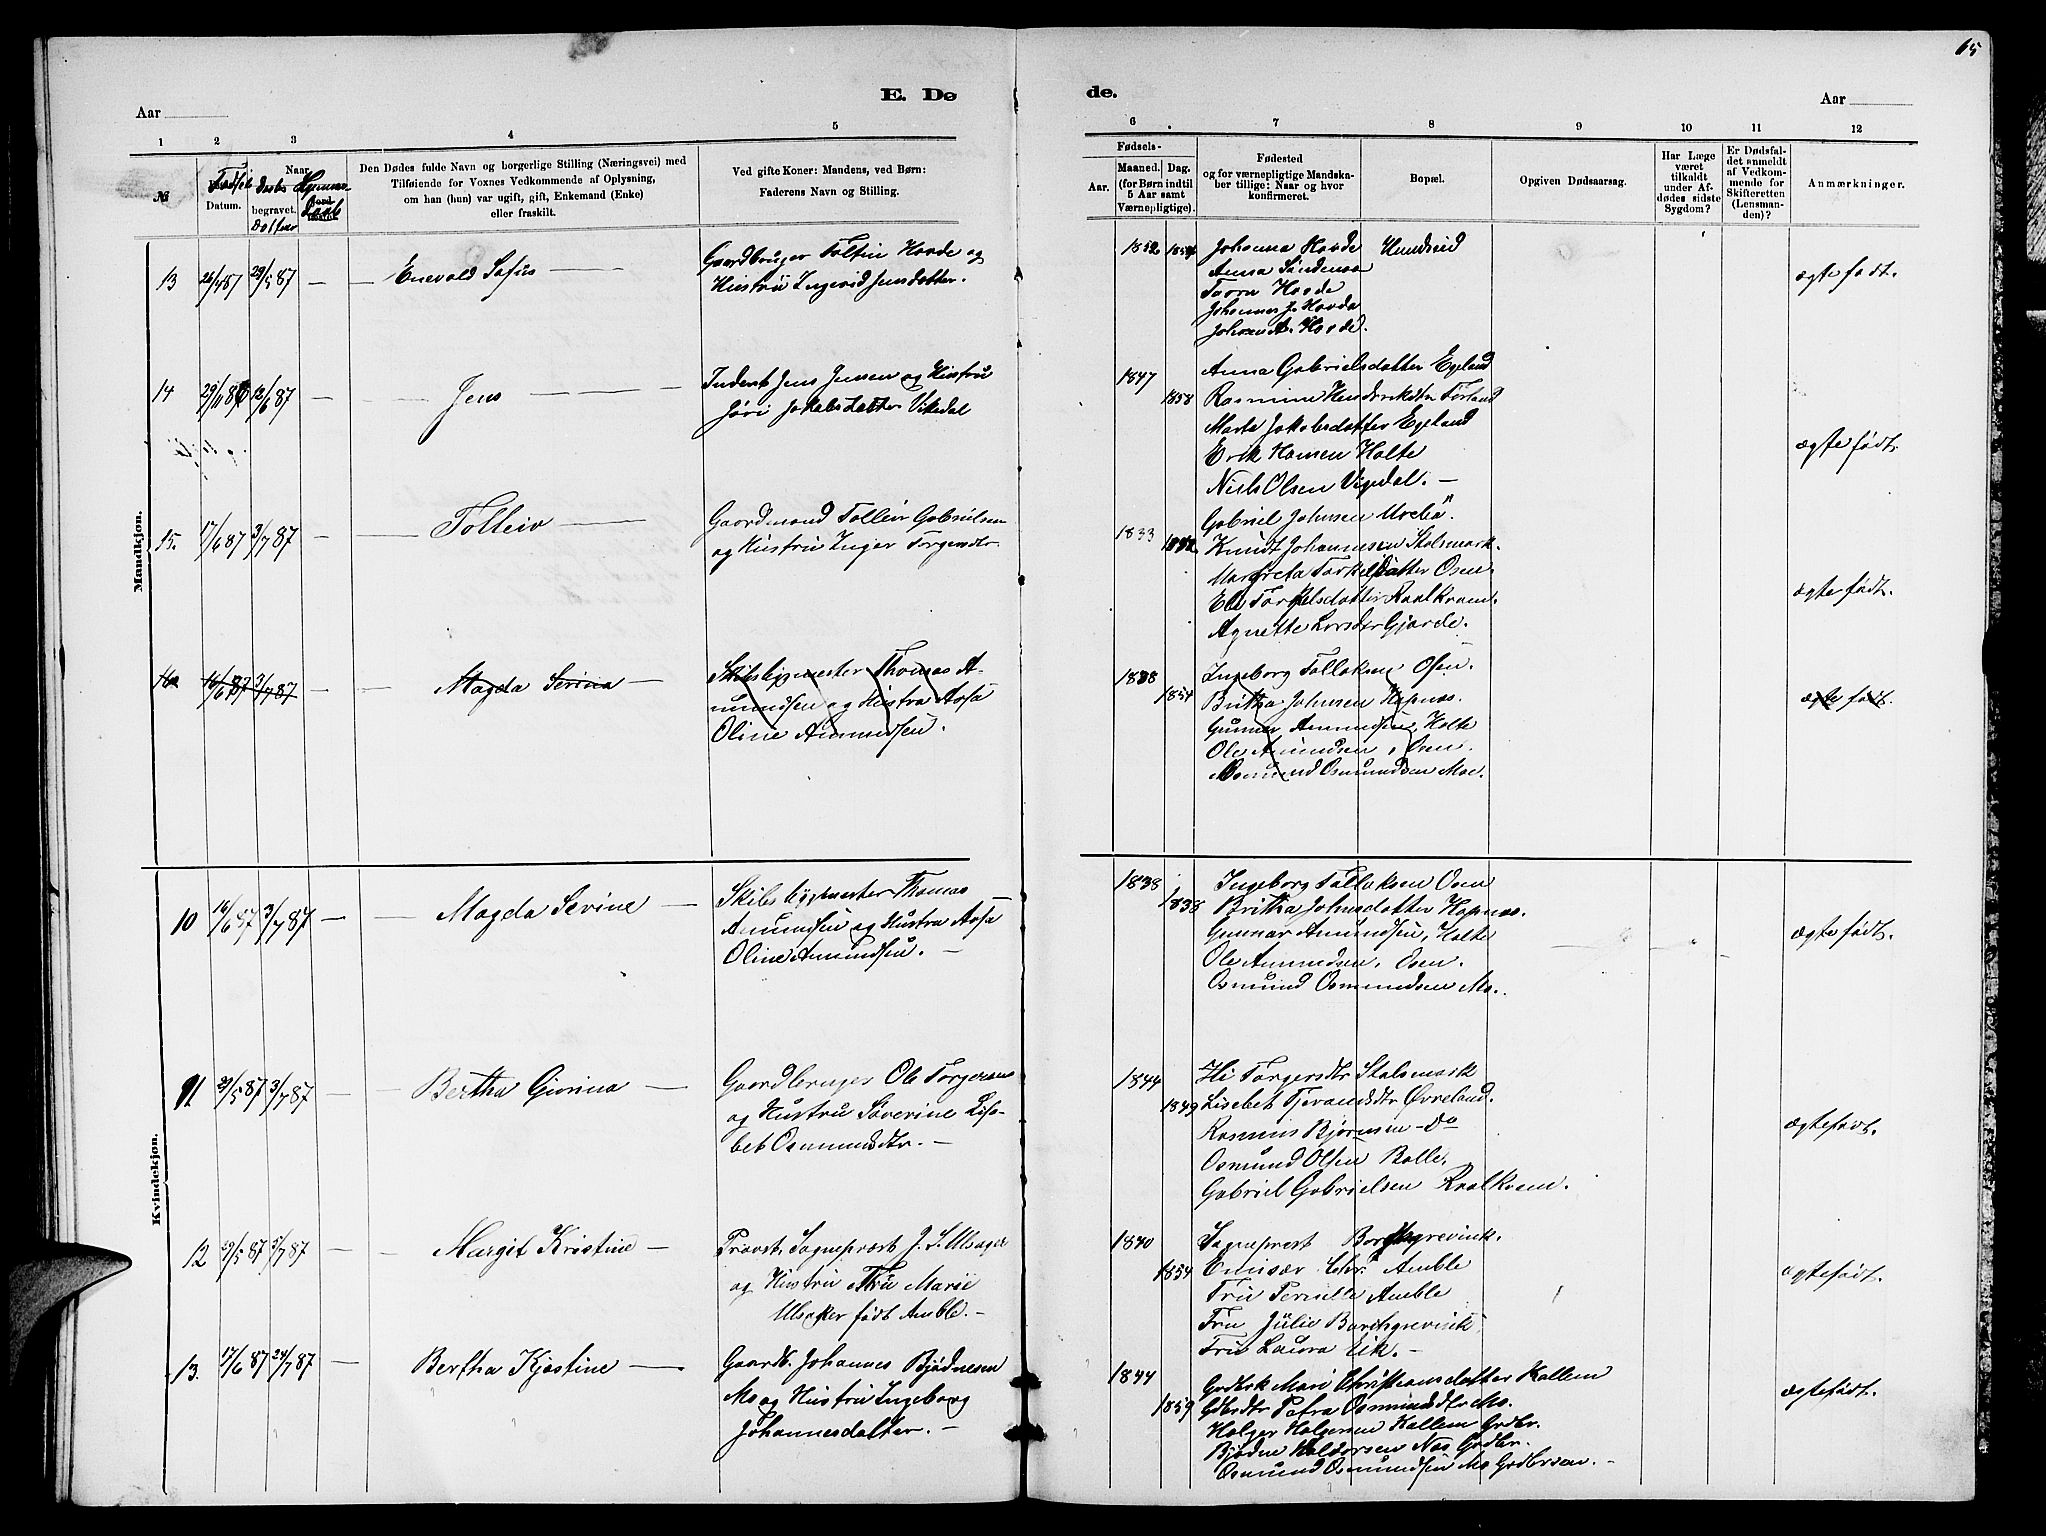 65
E. Dø
de.
Aar
Aar
1 2 3 4 5
6 7 8 9 10 11 12
№
Født
Datum.
Naar
begravet.
Døbt
Daab
Den Dødes fulde Navn og borgerlige Stilling (Næringsvei) med
Tilføiende for Voxnes Vedkommende af Oplysning,
om han (hun) var ugift, gift, Enkemand (Enke)
eller fraskilt.
Ved gifte Koner: Mandens, ved Børn:
Faderens Navn og Stilling.
Fødsels-
Aar.
Maaned. Dag.
(for Børn indtil
5 Aar samt
Værnepligtige).
Fødested
og for værnepligtige Mandska-
ber tillige: Naar og hvor
konfirmeret.
Bopæl.
Opgiven Dødsaarsag.
Har Læge
været
tilkaldt
under Af-
dødes sidste
Sygdom?
Er Dødsfal-
det anmeldt
af Vedkom-
mende for
Skifteretten
(Lensman-
den)?
Anmærkninger.
Mandkjøn.
13 26/4 87 29/5 87 — — Enevold Sofus —
Gaardbruger Toltin Hovde og
Hustru Ingerid Jensdatter.
1852 1854 Johanna Hovde Hundseid
Anna Sandenaa
Hovde
Johannes J. Hovda
Johan A. Hovde.
ægte født.
14 29/11 86 12/6 87 — — Jens — —
Inderst Jens Jensen og Hustru
Jøri Jakobsdatter Vikedal
1847 1858
Anna Gabrielsdatter Egeland
Rasmine Hendriksdtr Førland
Marta Jakobsdatter Egeland
Erik Hansen Holte
Niels Olsen Vigedal. —
ægte født.
15. 17/6 87 3/7 87 — — Tolleiv —
Gaardmand Tolleiv Gabrielsen
og Hustru Inger Torgersdtr.
1833
Gabriel Johnsen
Knudt Johannesen Stolsmark.
Margreta Torkelsdatter Osen.
Eli Torkelsdatter Raalkvam.
Agnette Larsdtr Gjerde.
ægte født.
16 16/6 87 3/7 87 — — Magda Serina —
Skibsbygmester Thomas A-
mundsen og Hustru Aasa
Oline Amundsen.
1838 1854
Ingeborg Tollaksen Osen.
Britha Johnsen Hapnæs.
Gunnar Amundsen, Holte
Ole Amundsen, Osen.
Osmund Osmundsen Moe.
ægte født.
Kvindekjøn.
10 16/6 87 3/7 87 — — Magda Serine —
Skibsbygmester Thomas
Amundsen og Hustru Aasa
Oline Amundsen. —
1838 1838
Ingeborg Tollaksen Osen
Britha Johnsdatter Hapnæs.
Gunnar Amundsen, Holte
Ole Amundsen. Osen.
Osmund Osmundsen Mo.
ægte født.
11 29/5 87 3/7 87 — — Bertha Gurina —
Gaardbruger Ole Torgersen
og Hustru Severine Lis-
bet Osmundsdtr. —
1844 1849
Torgersdtr Stolsmark
Lisebet Tjerandsdtr Øvreland.
Rasmus Bjørnsen — Do
Osmund Olsen Balle.
Gabriel Gabrielsen Raalkvam.
ægtefødt.
12 29/5 87 3/7 87 — — Margit Kristine —
Provst, Sognepræst J. S. Ulsager
og Hustru Fru Marie
Ulsaker født Amble. —
1840 1854
Sogneprest Borchgrevink.
Emisær Chr. Amble
Fru Pernille Amble
Fru Julie Borchgrevink
Fru Laura Eik. —
ægtefødt.
13. 17/6 87 24/7 87 — Bertha Kjøstine —
Gaardb. Johannes Bjødnesen
Mo og Hustru Ingeborg
Johannesdatter. —
1844 1859
Grdbrk Mari Christiansdatter Kallem
Gdbrdtr Petra Osmundsdtr Mo.
Holger Holgersen Kallem Grdbr.
Bjødne Haldorsen Nas Grdbr.
Osmund Osmundsen Mo Grdbrsøn. —
ægtefødt.